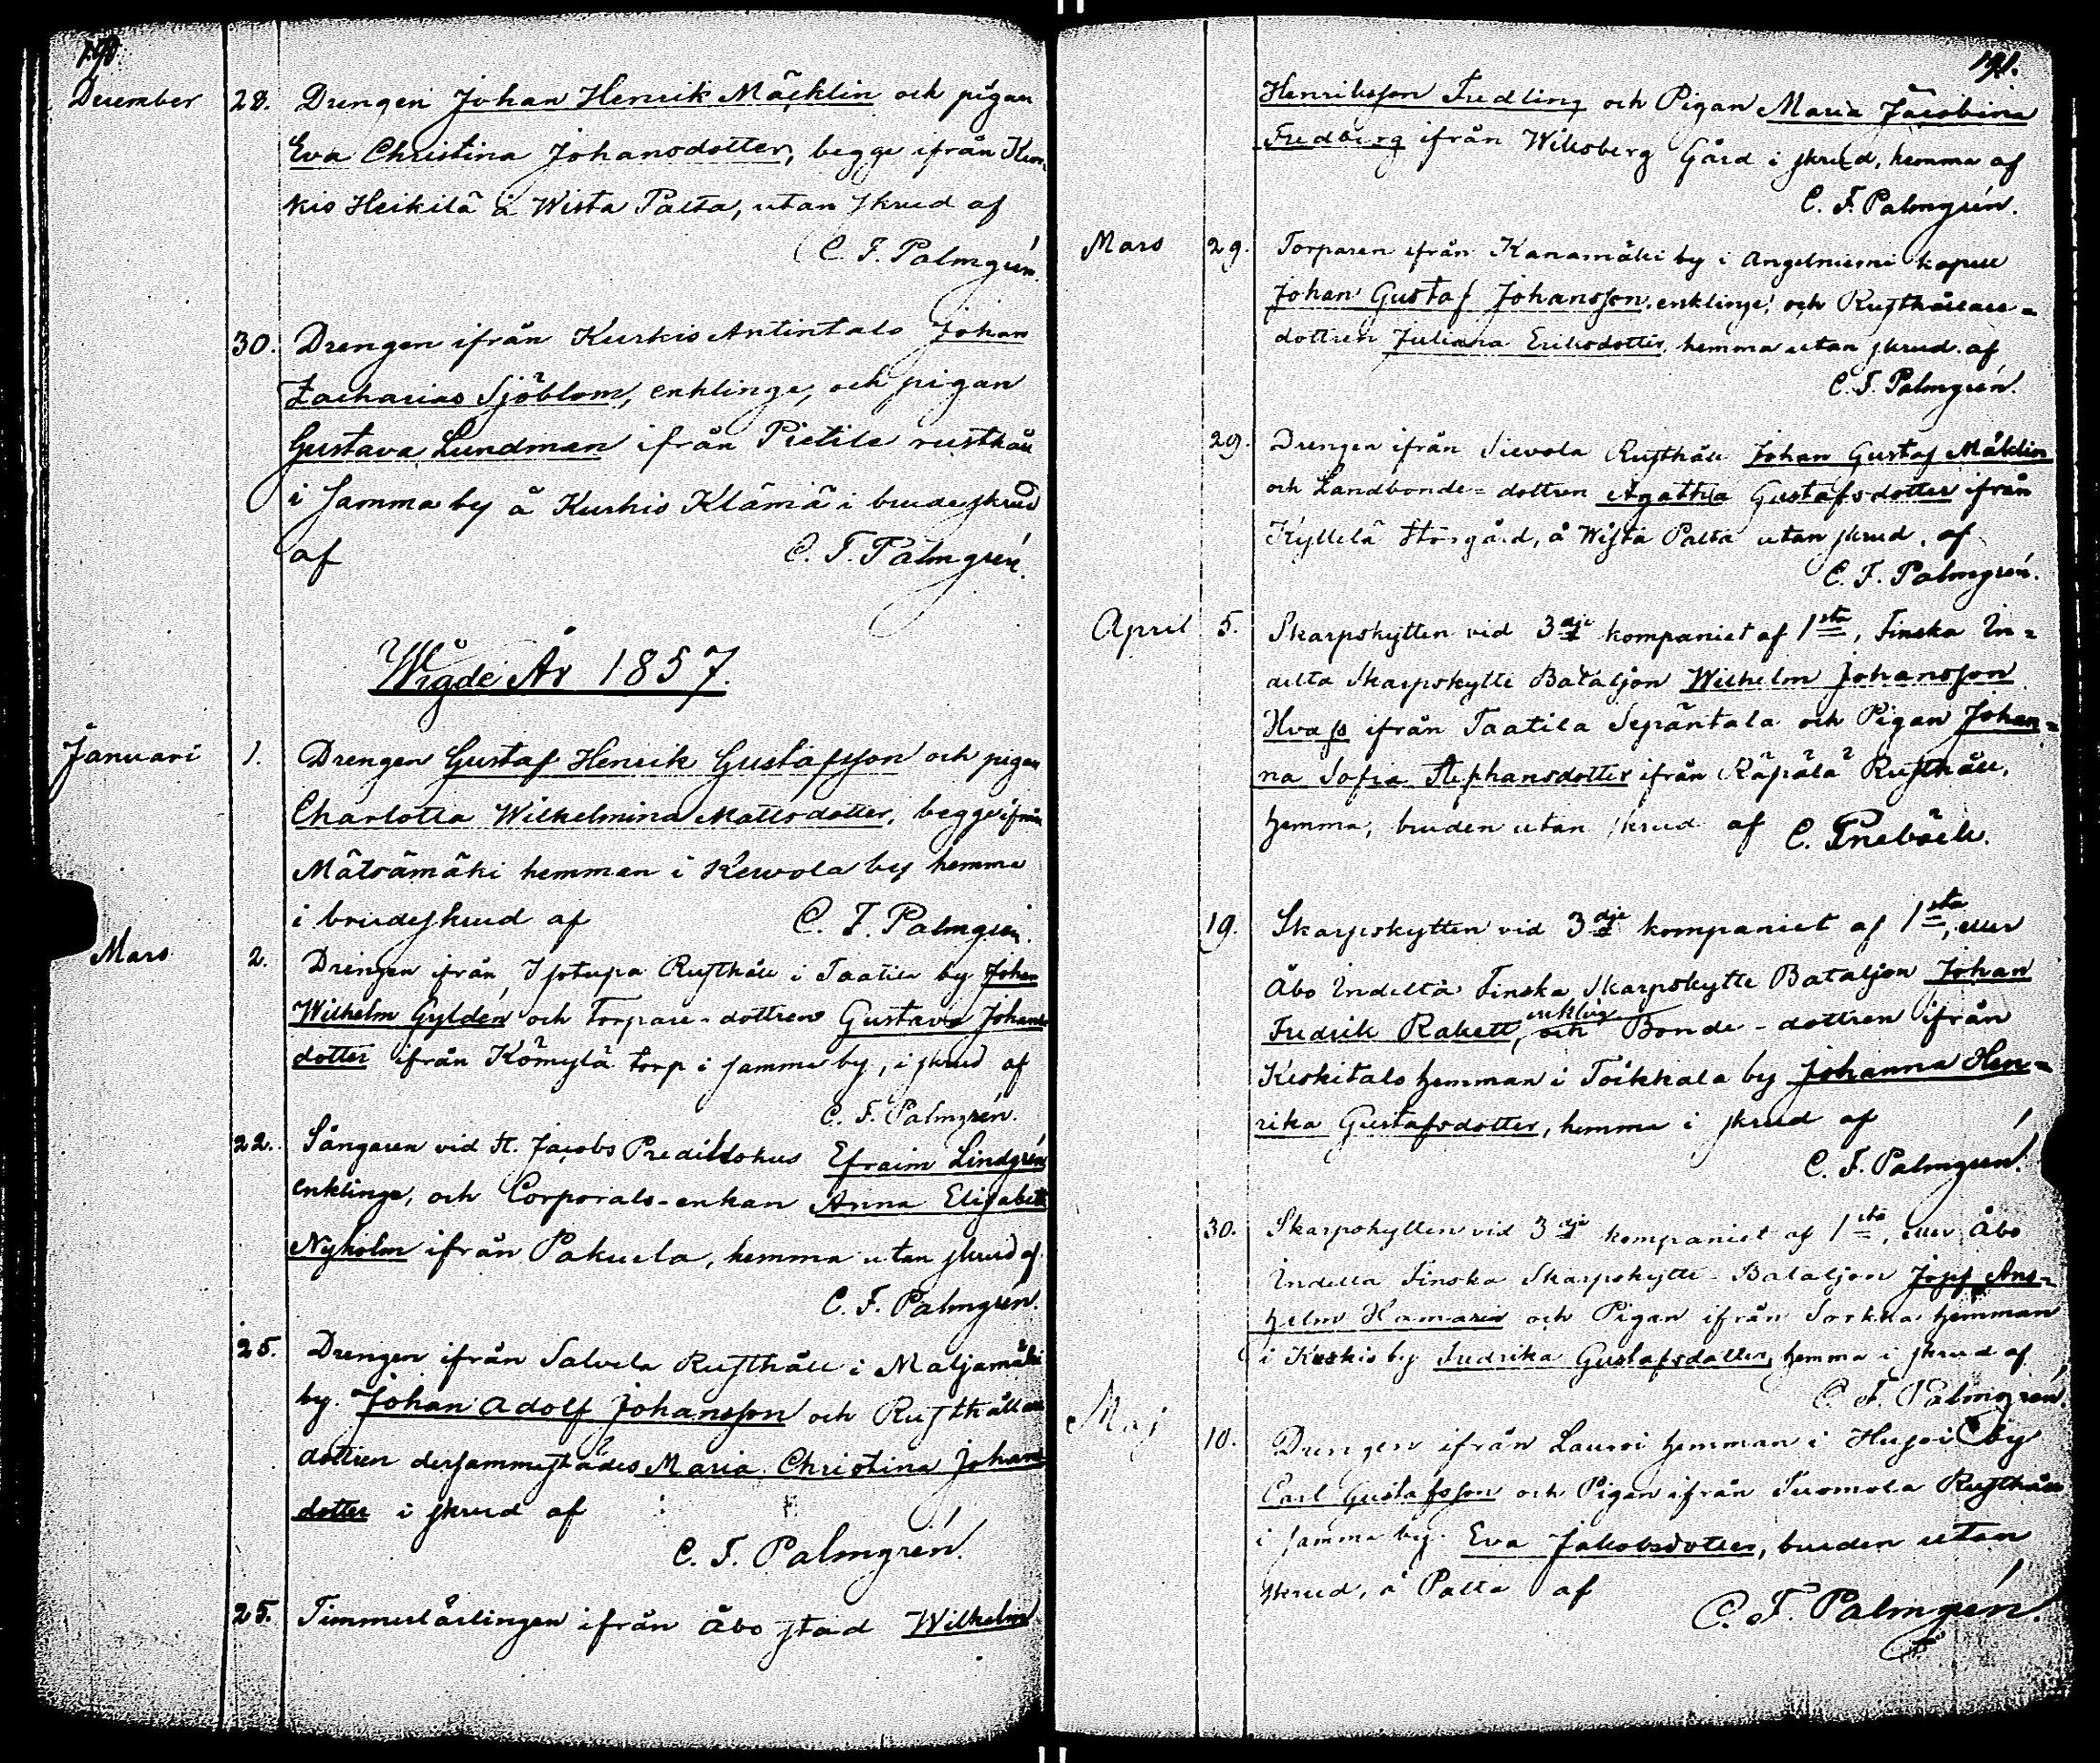 190.
December 28. Drengen Johan Henrik Mäcklin och pigan
Eva Christina Johansdotter, begge ifrån Kur-
kis Heikilä å Wista Palta, utan skrud af
C. F. Palmgrén.
30. Drengen ifrån Kurkis Antintalo Johan
Zacharias Sjöblom, enklinge, och pigan
Gustava Lundman ifrån Pietile rusthåll
i samma by å Kurkis Klämä i brudeskrud
af C. F. Palmgrén.
Wigde År 1857.
Januari 1. Drengen Gustaf Henrik Gustafsson och pigan
Charlotta Wilhelmina Mattsdotter, begge ifrån
Mätsämäki hemman i Kewola by hemma
i brudeskrud af C. F. Palmgrén.
Mars 2. Drengen ifrån Isotupa Rusthåll i Taatila by Johan
Wilhelm Gyldén och Torpare-dottren Gustava Johans
dotter ifrån Kömylä torp i samma by, i skrud af
C. F. Palmgrén.
22. Sångaren vid St. Jacobs Predikohus Efraim Lindgrén
enklinge, och Corporals-enkan Anna Elisabeth
Nyholm ifrån Pakurla, hemma utan skrud af
C. F. Palmgrén.
25. Drengen ifrån Salvela Rusthåll i Maljamäki
by. Johan Adolf Johansson och Rusthållare
dottren dersammestädes Maria Christina Johans
dotter i skrud af
C. F. Palmgrén.
25. Timmerlärlingen ifrån Åbo stad Wilhelm
191.
Henriksson Fredling och Pigan Maria Jacobina
Fredberg ifrån Wiksberg Gård i skrud, hemma af
C. F. Palmgrén.
Mars 29. Torparen ifrån Kanamäki by i Angelniemi kapell
Johan Gustaf Johansson, enklinge, och Rusthållare-
dottren Juliana Eriksdotter, hemma utan skrud af
C. F. Palmgrén.
29. Drengen ifrån Sievola Rusthåll Johan Gustaf Mäklin
och Landbonde-dottren Agatha Gustafsdotter ifrån
Kyllelä Storgård, å Wista Palta utan skrud, af
C. F. Palmgrén.
April 5. Skarpskytten vid 3dje kompaniet af 1sta, Finska In-
delta Skarpskytte Bataljon Wilhelm Johansson
Hvass ifrån Taatila Sepäntalo och Pigan Johan-
na Sofia Stephansdotter ifrån Räpälä Rusthåll,
hemma, bruden utan skrud af C. Frebäck.
19. Skarpskytten vid 3dje kompaniet af 1sta, eller
Åbo Indelta Finska Skarpskytte Bataljon Johan
Fredrik Rakett, enkling och Bonde-dottren ifrån
Keskitalo hemman i Toikkala by Johanna Hen-
rika Gustafsdotter, hemma i skrud af
C. F. Palmgrén.
30. Skarpskytten vid 3dje kompaniet af 1sta, eller Åbo
Indelta Finska Skarpskytte-Bataljon Josef Ans-
helm Hamarén och Pigan ifrån Sorkka hemman
i Kurkis by Fredrika Gustafsdotter, hemma i skrud af
C. F. Palmgrén.
Maj 10. Drengen ifrån Laussi hemman i Hujoi by
Carl Gustafsson och Pigan ifrån Tuomola Rusthåll
i samma by. Eva Jakobsdotter, bruden utan
skrud, å Palta af
C. F. Palmgrén.